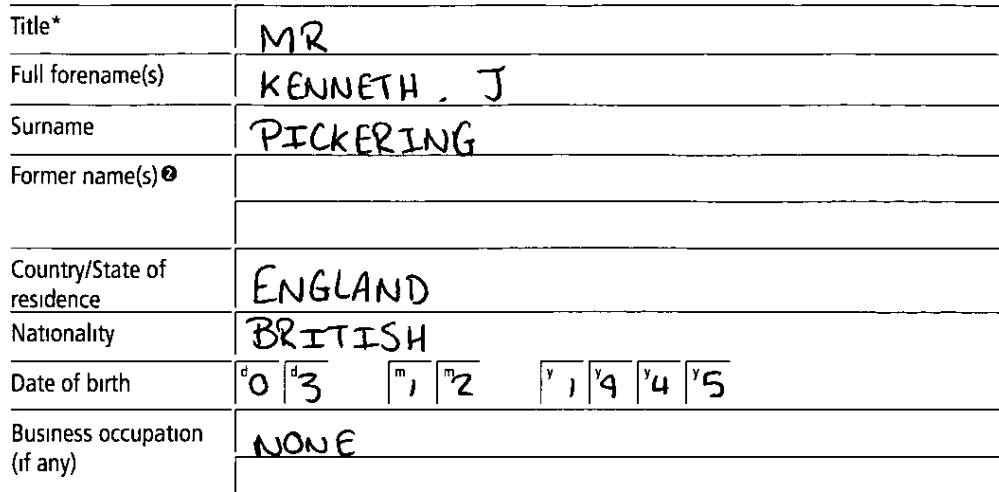 Title* MR
Full forename(s) KENNETH. J
Surname PICKERING
Former name(s) ❷
Country/State of
residence ENGLAND
Nationality BRITISH
Date of birth d0 d3 m1 m2 y1 y9 y4 y5
Business occupation
(if any) NONE